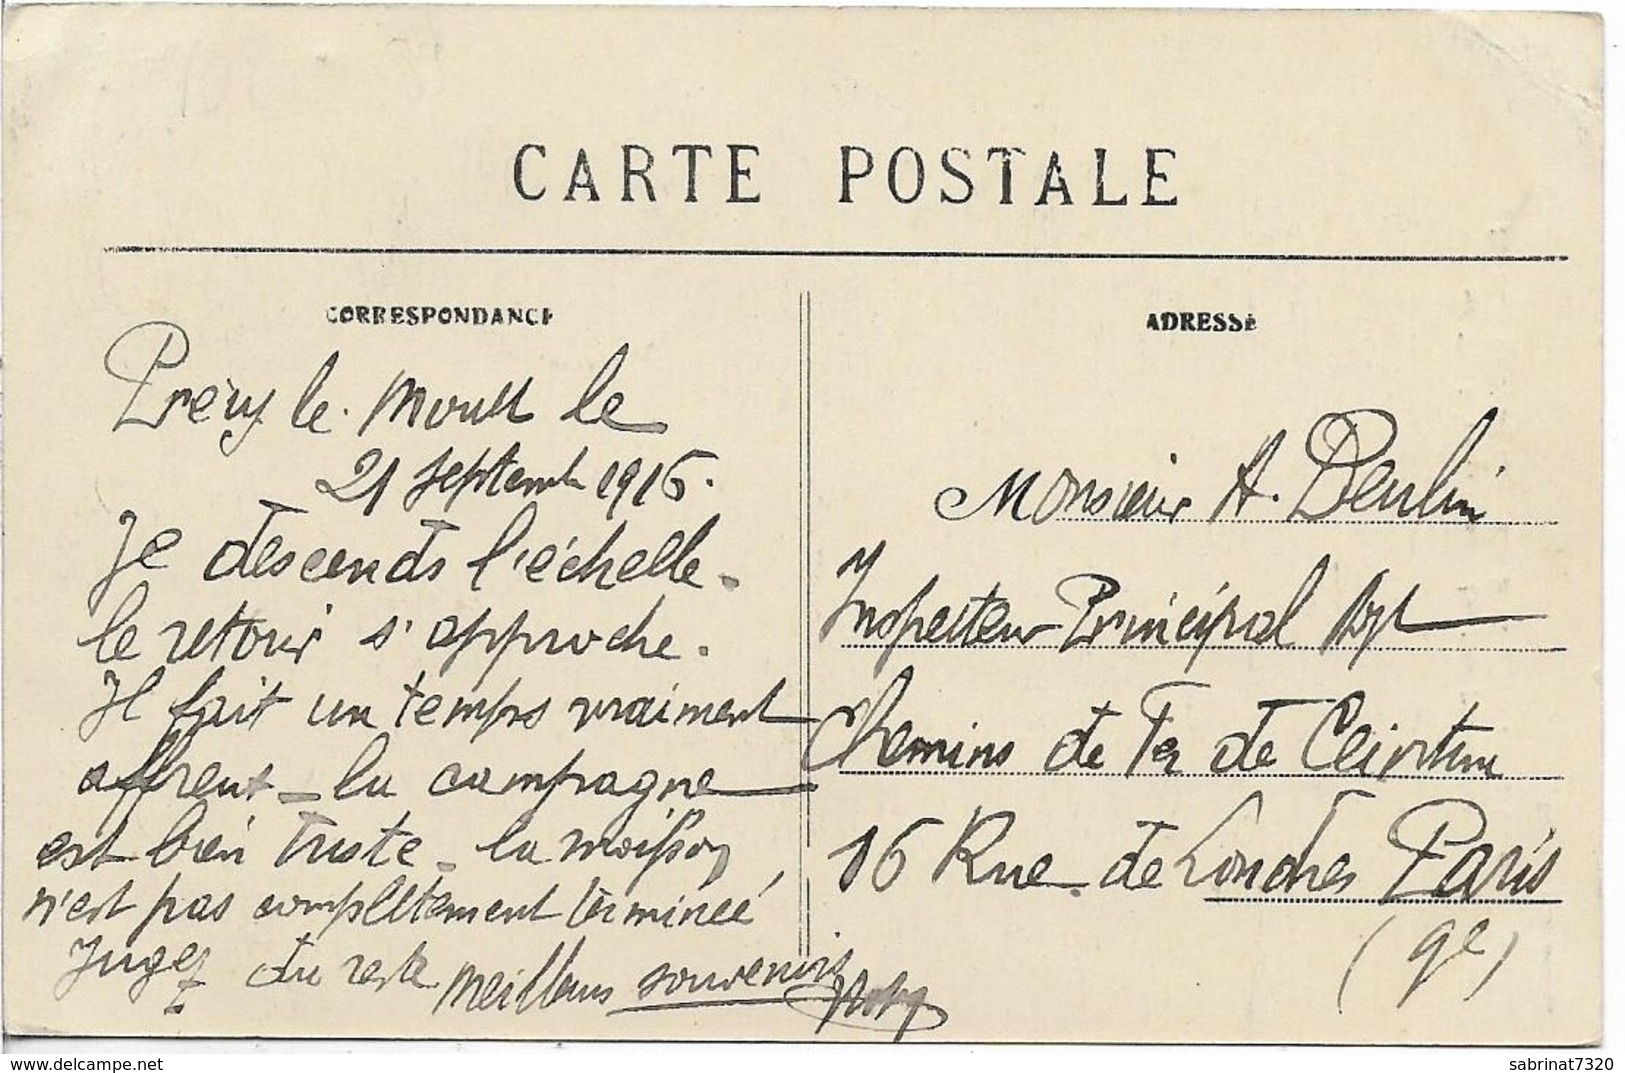 CARTE POSTALE
CORRESPONDANCE
Précy le Moult le
21 septemb 1916.
Je descends l'échelle.
le retour s'approche.
Il fait un temps vraiment
affreux - la campagne
est bien triste - la moisson
n'est pas complètement terminée
Jugez du reste Meilleurs souvenirs
ADRESSE
Monsieur A. Beulin
Inspecteur Principal
Chemins de Fer de Ceinture
16 Rue de Londres Paris
(9e)
sabrinat7320